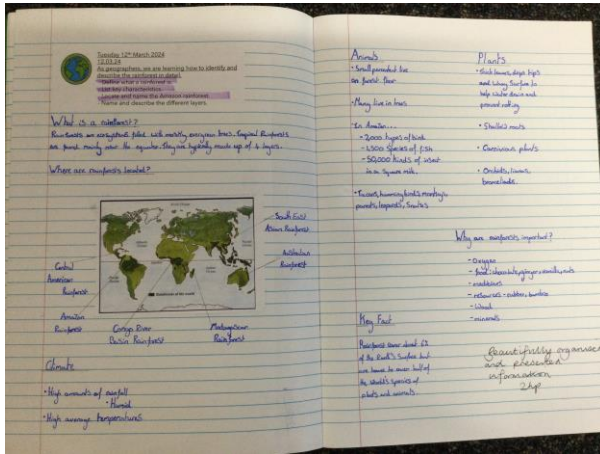 Tuesday 12th March 2024
12.03.24
As geographers, we are learning how to identify and
describe the rainforest in detail.
- Define what a rainforest is.
- List key characteristics.
- Locate and name the Amazon rainforest.
- Name and describe the different layers.
What is a rainforest?
Rainforests are ecosystems filled with mostly evergreen trees. Tropical Rainforests
are found mainly near the equator. They are typically made up of 4 layers.
Where are rainforests located?
South East
Asian Rainforest
Australasian
Rainforest
Central
American
Rainforest
Amazon
Rainforest
Congo River
Basin Rainforest
Madagascar
Rainforest
Climate
• High amounts of rainfall
• Humid
• High average temperatures
Animals
• Small
live
on forest floor
• Many live in trees
• In Amazon....
- 2,000 types of bird
- 1,500 species of fish
- 50,000 kinds of insect
in a square mile.
• Toucans, humming birds, monkeys,
parrots, leopards, snakes
Key Fact
Rainforests cover about 6%
of the Earth's surface but
are home to over half of
the world's species of
plants and animals.
Plants
• Thick leaves, drip tips
and waxy surface to
help water down and
prevent rotting
• Shallow roots
• Carnivorous plants
• Orchids, lianas,
bromeliads.
Why are rainforests important?
- oxygen
- food: chocolate, ginger, vanilla, nuts
- medicines
- resources - rubber, bamboo
- wood
- minerals
Beautifully organised
and presented
information
2hp